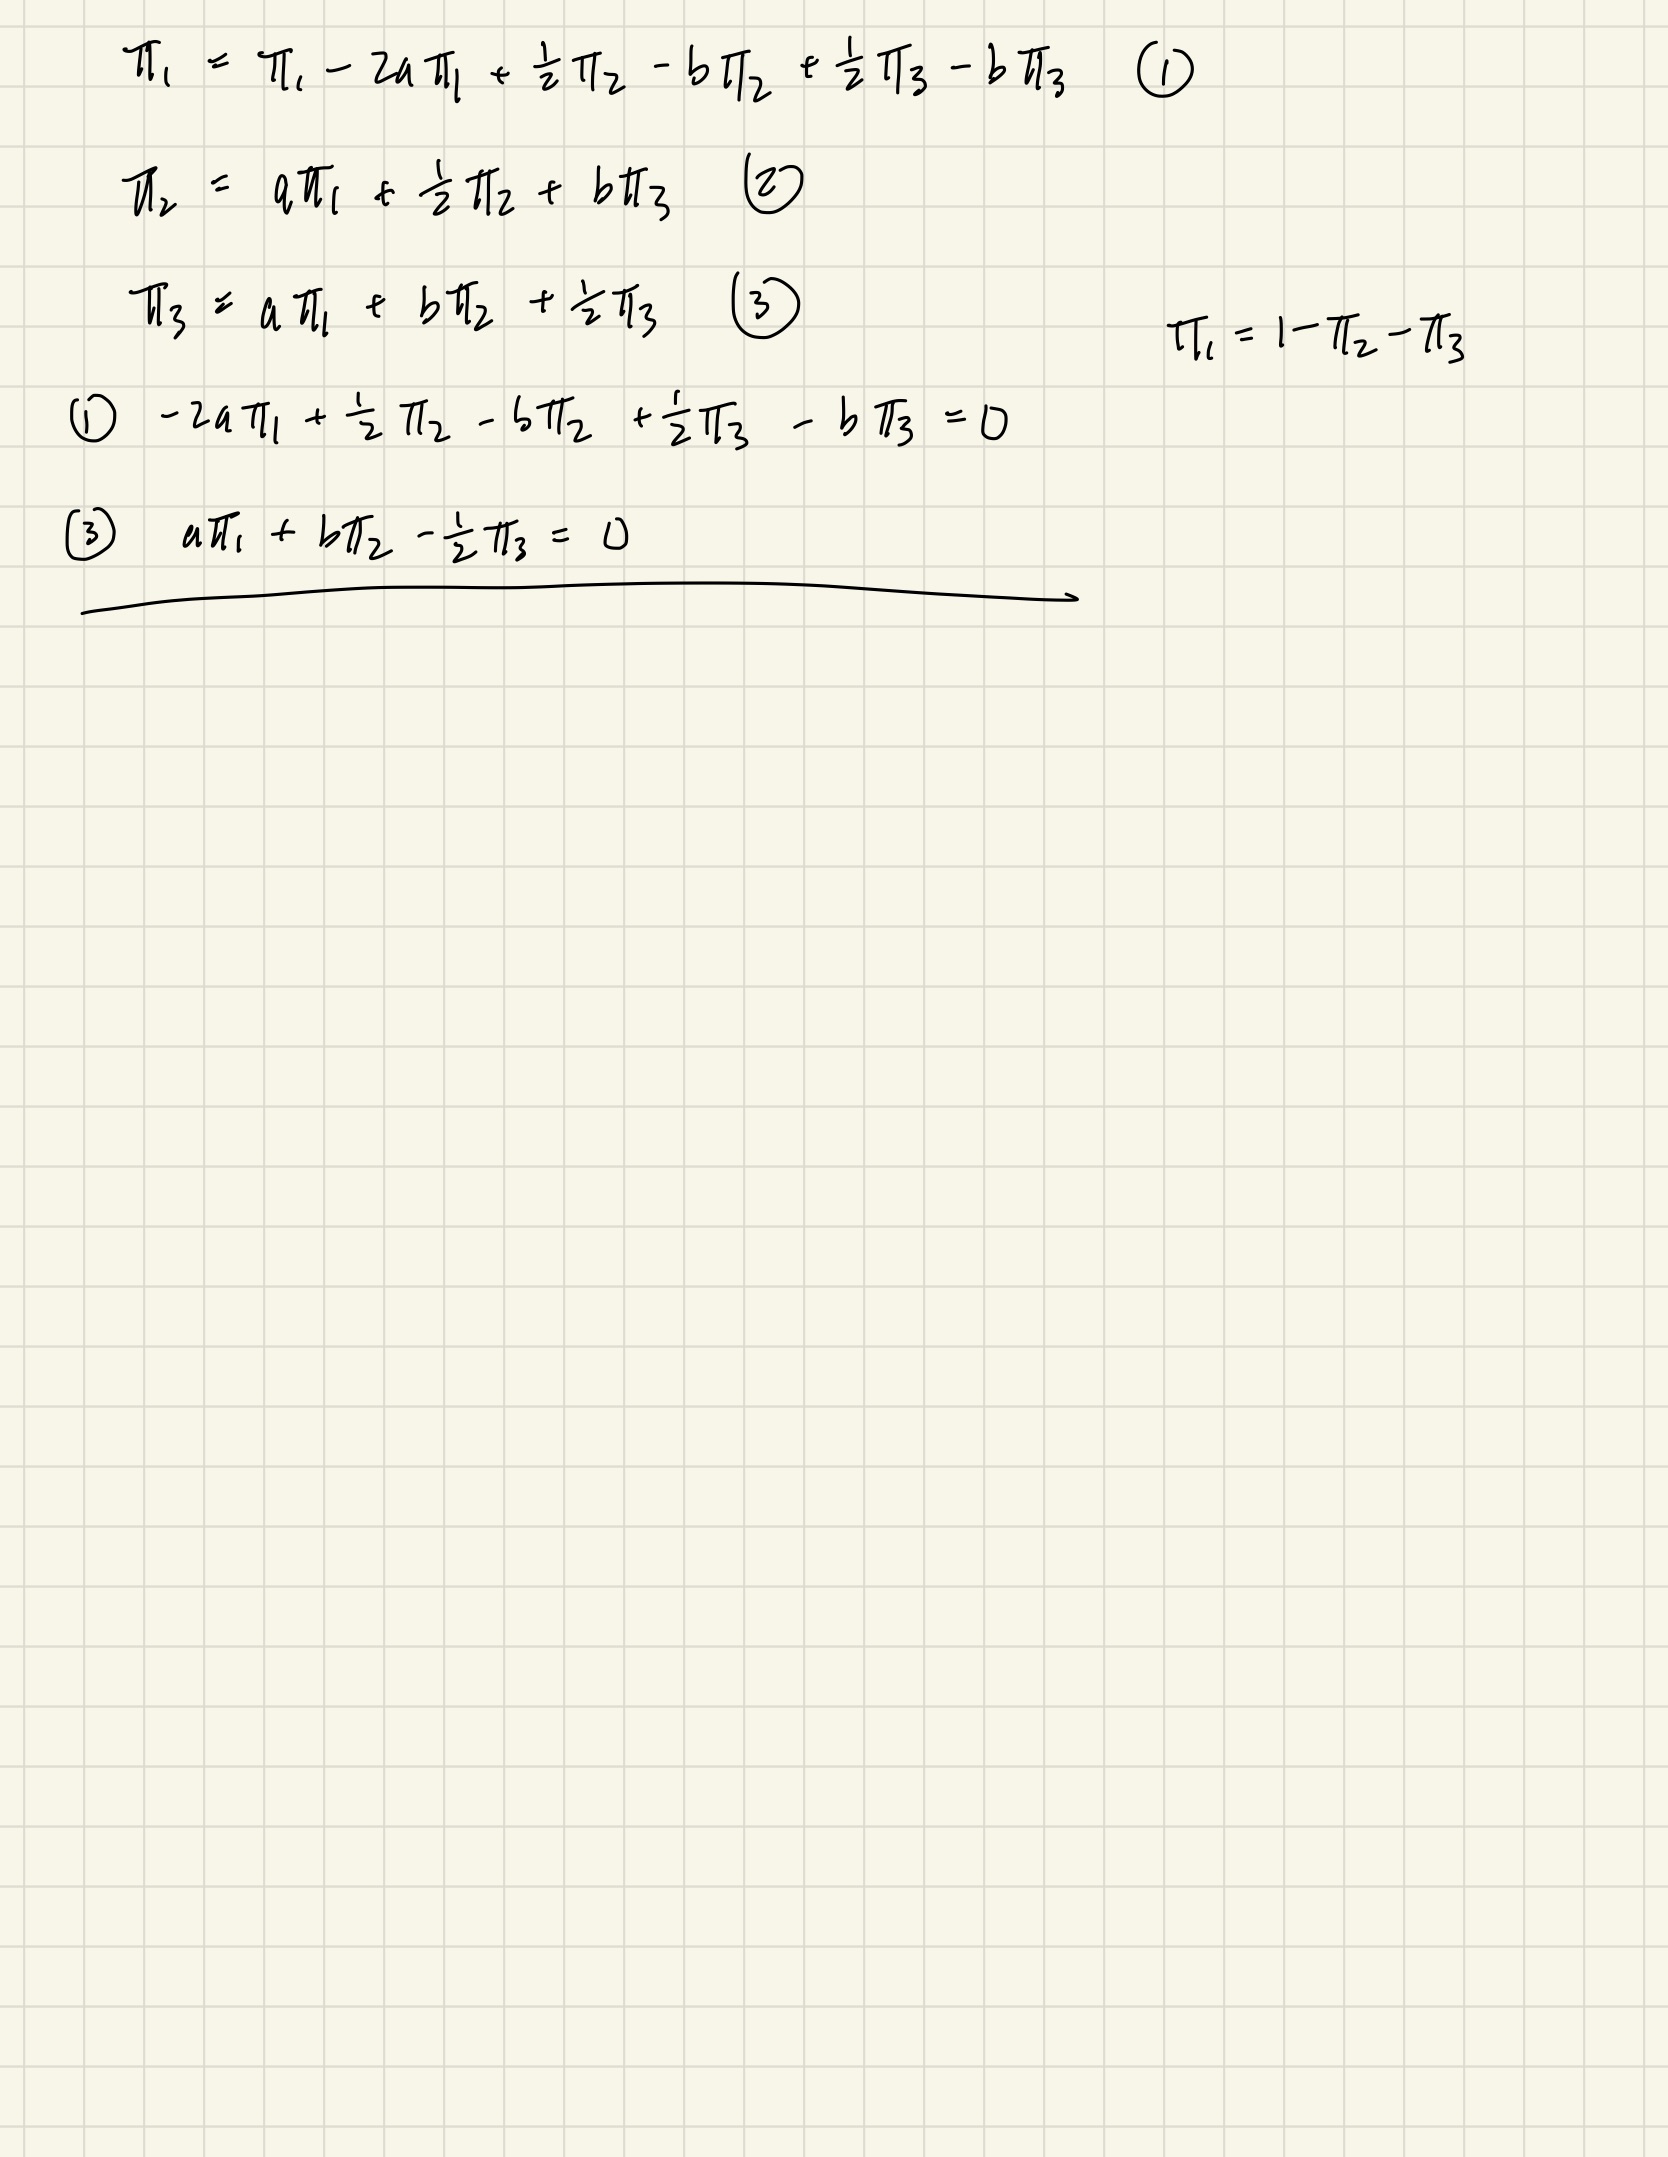 π₁ = π₁ − 2aπ₁ + ½π₂ − bπ₂ + ½π₃ − bπ₃ ①
π₂ = aπ₁ + ½π₂ + bπ₃ ②
π₃ = aπ₁ + bπ₂ + ½π₃ ③
π₁ = 1 − π₂ − π₃
① −2aπ₁ + ½π₂ − bπ₂ + ½π₃ − bπ₃ = 0
③ aπ₁ + bπ₂ − ½π₃ = 0